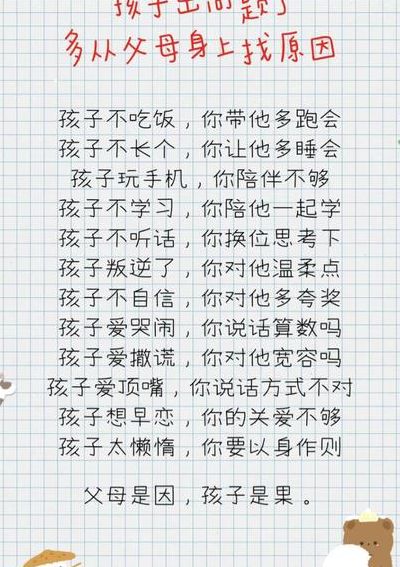 孩子出问题了
多从父母身上找原因
孩子不吃饭，你带他多跑会
孩子不长个，你让他多睡会
孩子玩手机，你陪伴不够
孩子不学习，你陪他一起学
孩子不听话，你换位思考下
孩子叛逆了，你对他温柔点
孩子不自信，你对他多夸奖
孩子爱哭闹，你说话算数吗
孩子爱撒谎，你对他宽容吗
孩子爱顶嘴，你说话方式不对
孩子想早恋，你的关爱不够
孩子太懒惰，你要以身作则
父母是因，孩子是果。